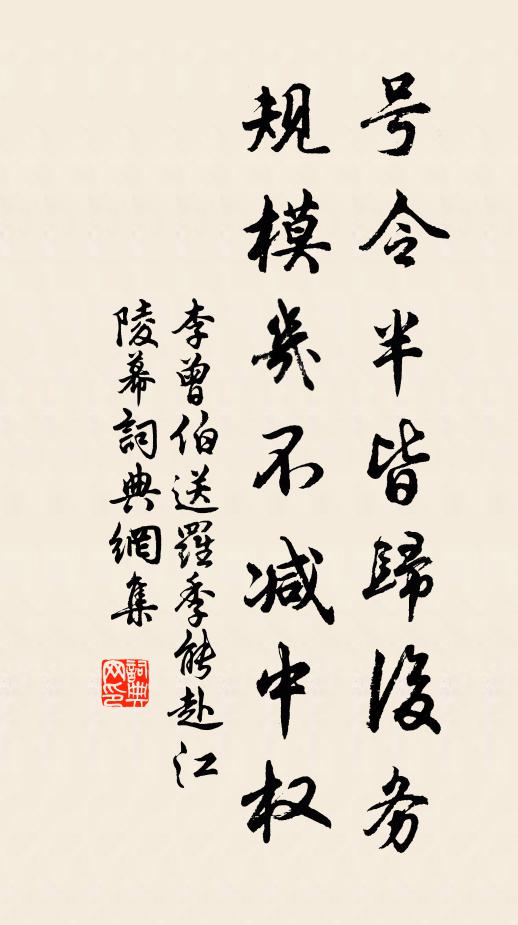 号令半皆歸後务
规模幾不减中权
李曾伯送羅季能赴江
陵幕詞典網集
詞典
网印